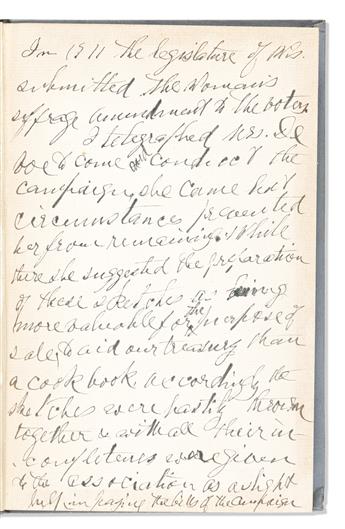 In 1911 the legislature of Wis.
submitted the Woman's
suffrage amendment to the voters
I telegraphed Mrs. De
voe to come and conduct the
campaign, she came but
circumstances prevented
her from remaining. While
there she suggested the preparation
of these sketches as being
more valuable for the purpose of
sale to aid our treasury than
a cook book. accordingly the
sketches were hastily thrown
together & with all their in-
completeness were given
to the association as a slight
help in paying the bills of the campaign